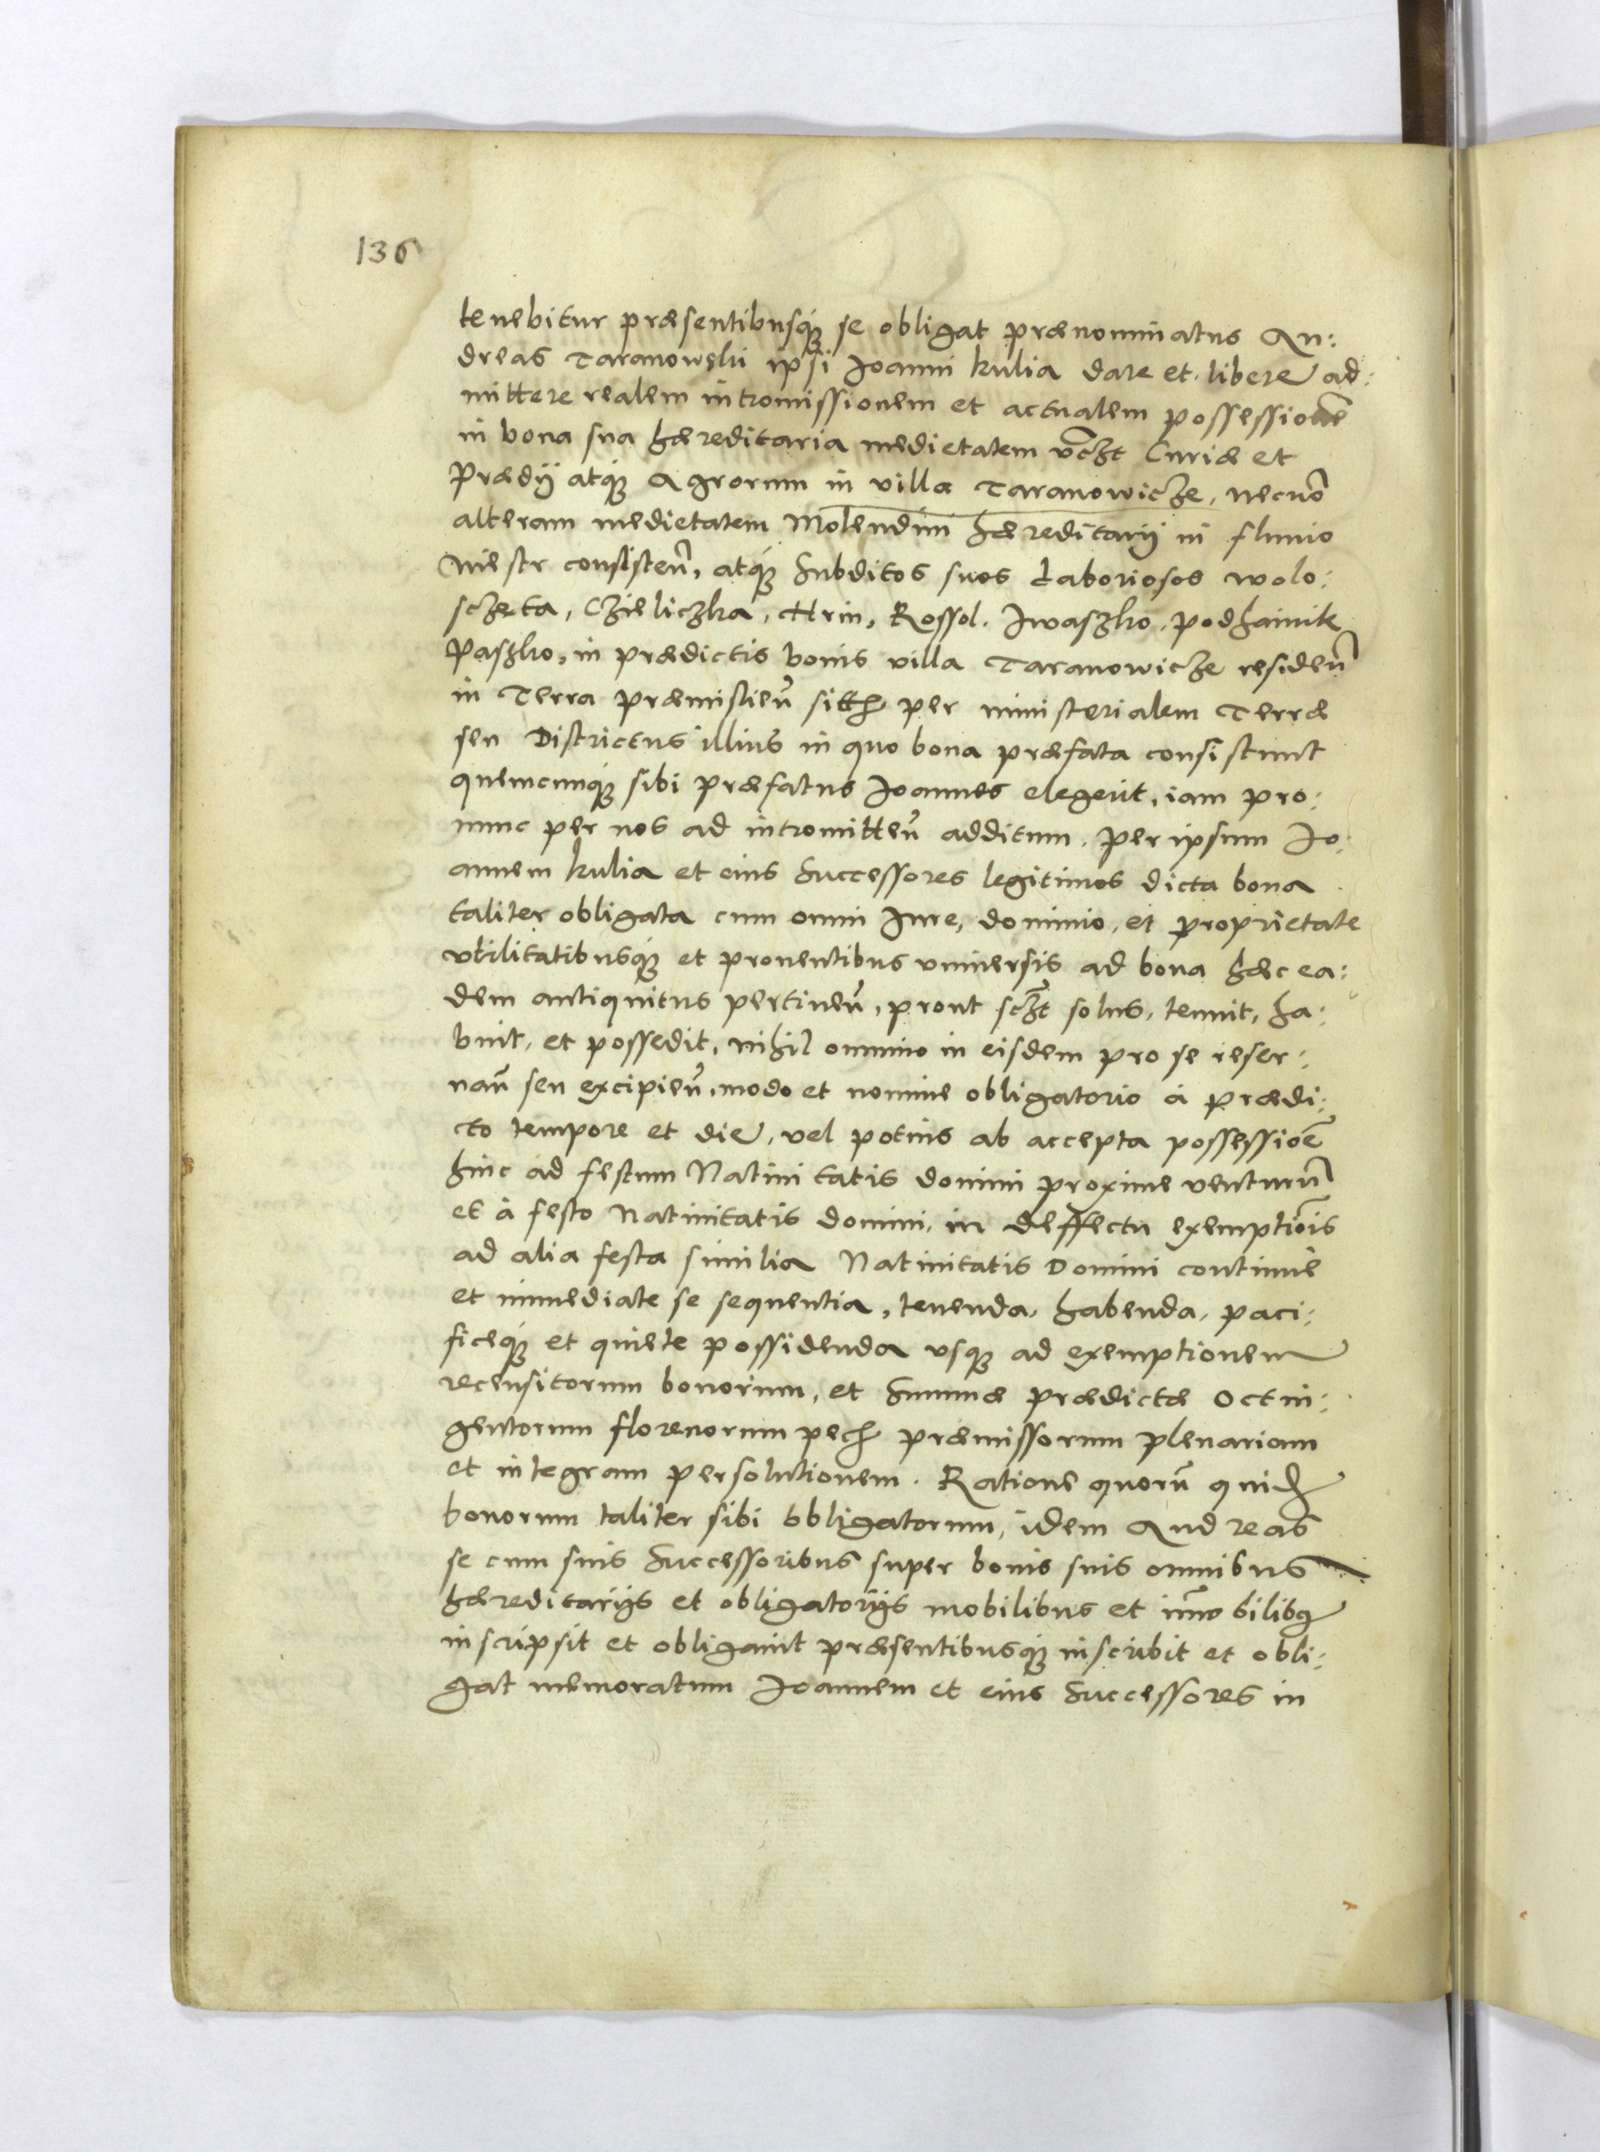 136
tenebitur præsentibusq́ꝫ se obligat prænominatus An:
dreas Taranowski ipsi Joanni kulia dare et libere ad:
mittere realem intromissionem et actualem possessionē
in bona sua hæreditaria medietatem vc̄zt Curiæ et
Prædij atq́ꝫ Agrorum in villa Taranowicze, necnō
alteram medietatem Molendini hæreditarij in fluuio
Niestr consisteñ, atq́ꝫ Subditos suos Laboriosos wolo:
sczeta, Czieliczka, Hrin, Rossol. Jwaszko, podhainik
Paszko, in prædictis bonis villa Taranowicze resideñ
in Terra Præmislieñ sitħ per ministerialem Terræ
seu Districtus illius in quo bona præfata consistunt
quemcunq́ꝫ sibi præfatus Joannes elegerit, iam pro:
nunc per nos ad intromitteñ additum. Per ipsum Jo:
annem kulia et eius Successores legitimos dicta bona
taliter obligata cum omni Jure, dominio, et proprietate
vtilitatibusq́ꝫ et prouentibus vniuersis ad bona hæc ea:
dem antiquitus pertineñ, prout sc̄zt solus, tenuit, ha:
buit, et possedit, nihil omnino in eisdem pro se reser:
uañ seu excipieñ, modo et nomine obligatorio à prædi:
cto tempore et die, vel potius ab accepta possessiōe
hinc ad festum Natiuitatis domini proxime venturū
et à festo Natiuitatis domini, in deffectu exemptiōis
ad alia festa similia Natiuitatis Domini continuè
et immediate se sequentia, tenenda, habenda, paci:
ficeq́ꝫ et quiete possidenda vsqꝫ ad exemptionem
recensitorum bonorum, et Summæ prædictæ Octin:
gentorum florenorum pecħ præmissorum plenariam
et integram persolutionem. Ratione quorū quidꝫ
bonorum taliter sibi obligatorum, idem Andreas
se cum suis Successoribus super bonis suis omnibus
hæreditarijs et obligatorijs mobilibus et im̄obilibꝫ
inscripsit et obligauit præsentibusq́ꝫ inscribit et obli:
gat memoratum Joannem et eius Successores in